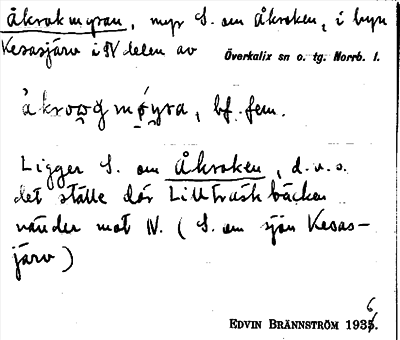 Åkrokmyran, myr S. om Åkroken, i byn
Kesasjärv i N delen av Överkalix sn o. tg. Norrb. l.
bf. fem.
Ligger S. om Åkroken, d.v.s.
det ställe där Lillträskbäcken
vänder mot N. (S. om sjön Kesas-
järv)
EDVIN BRÄNNSTRÖM 1936.